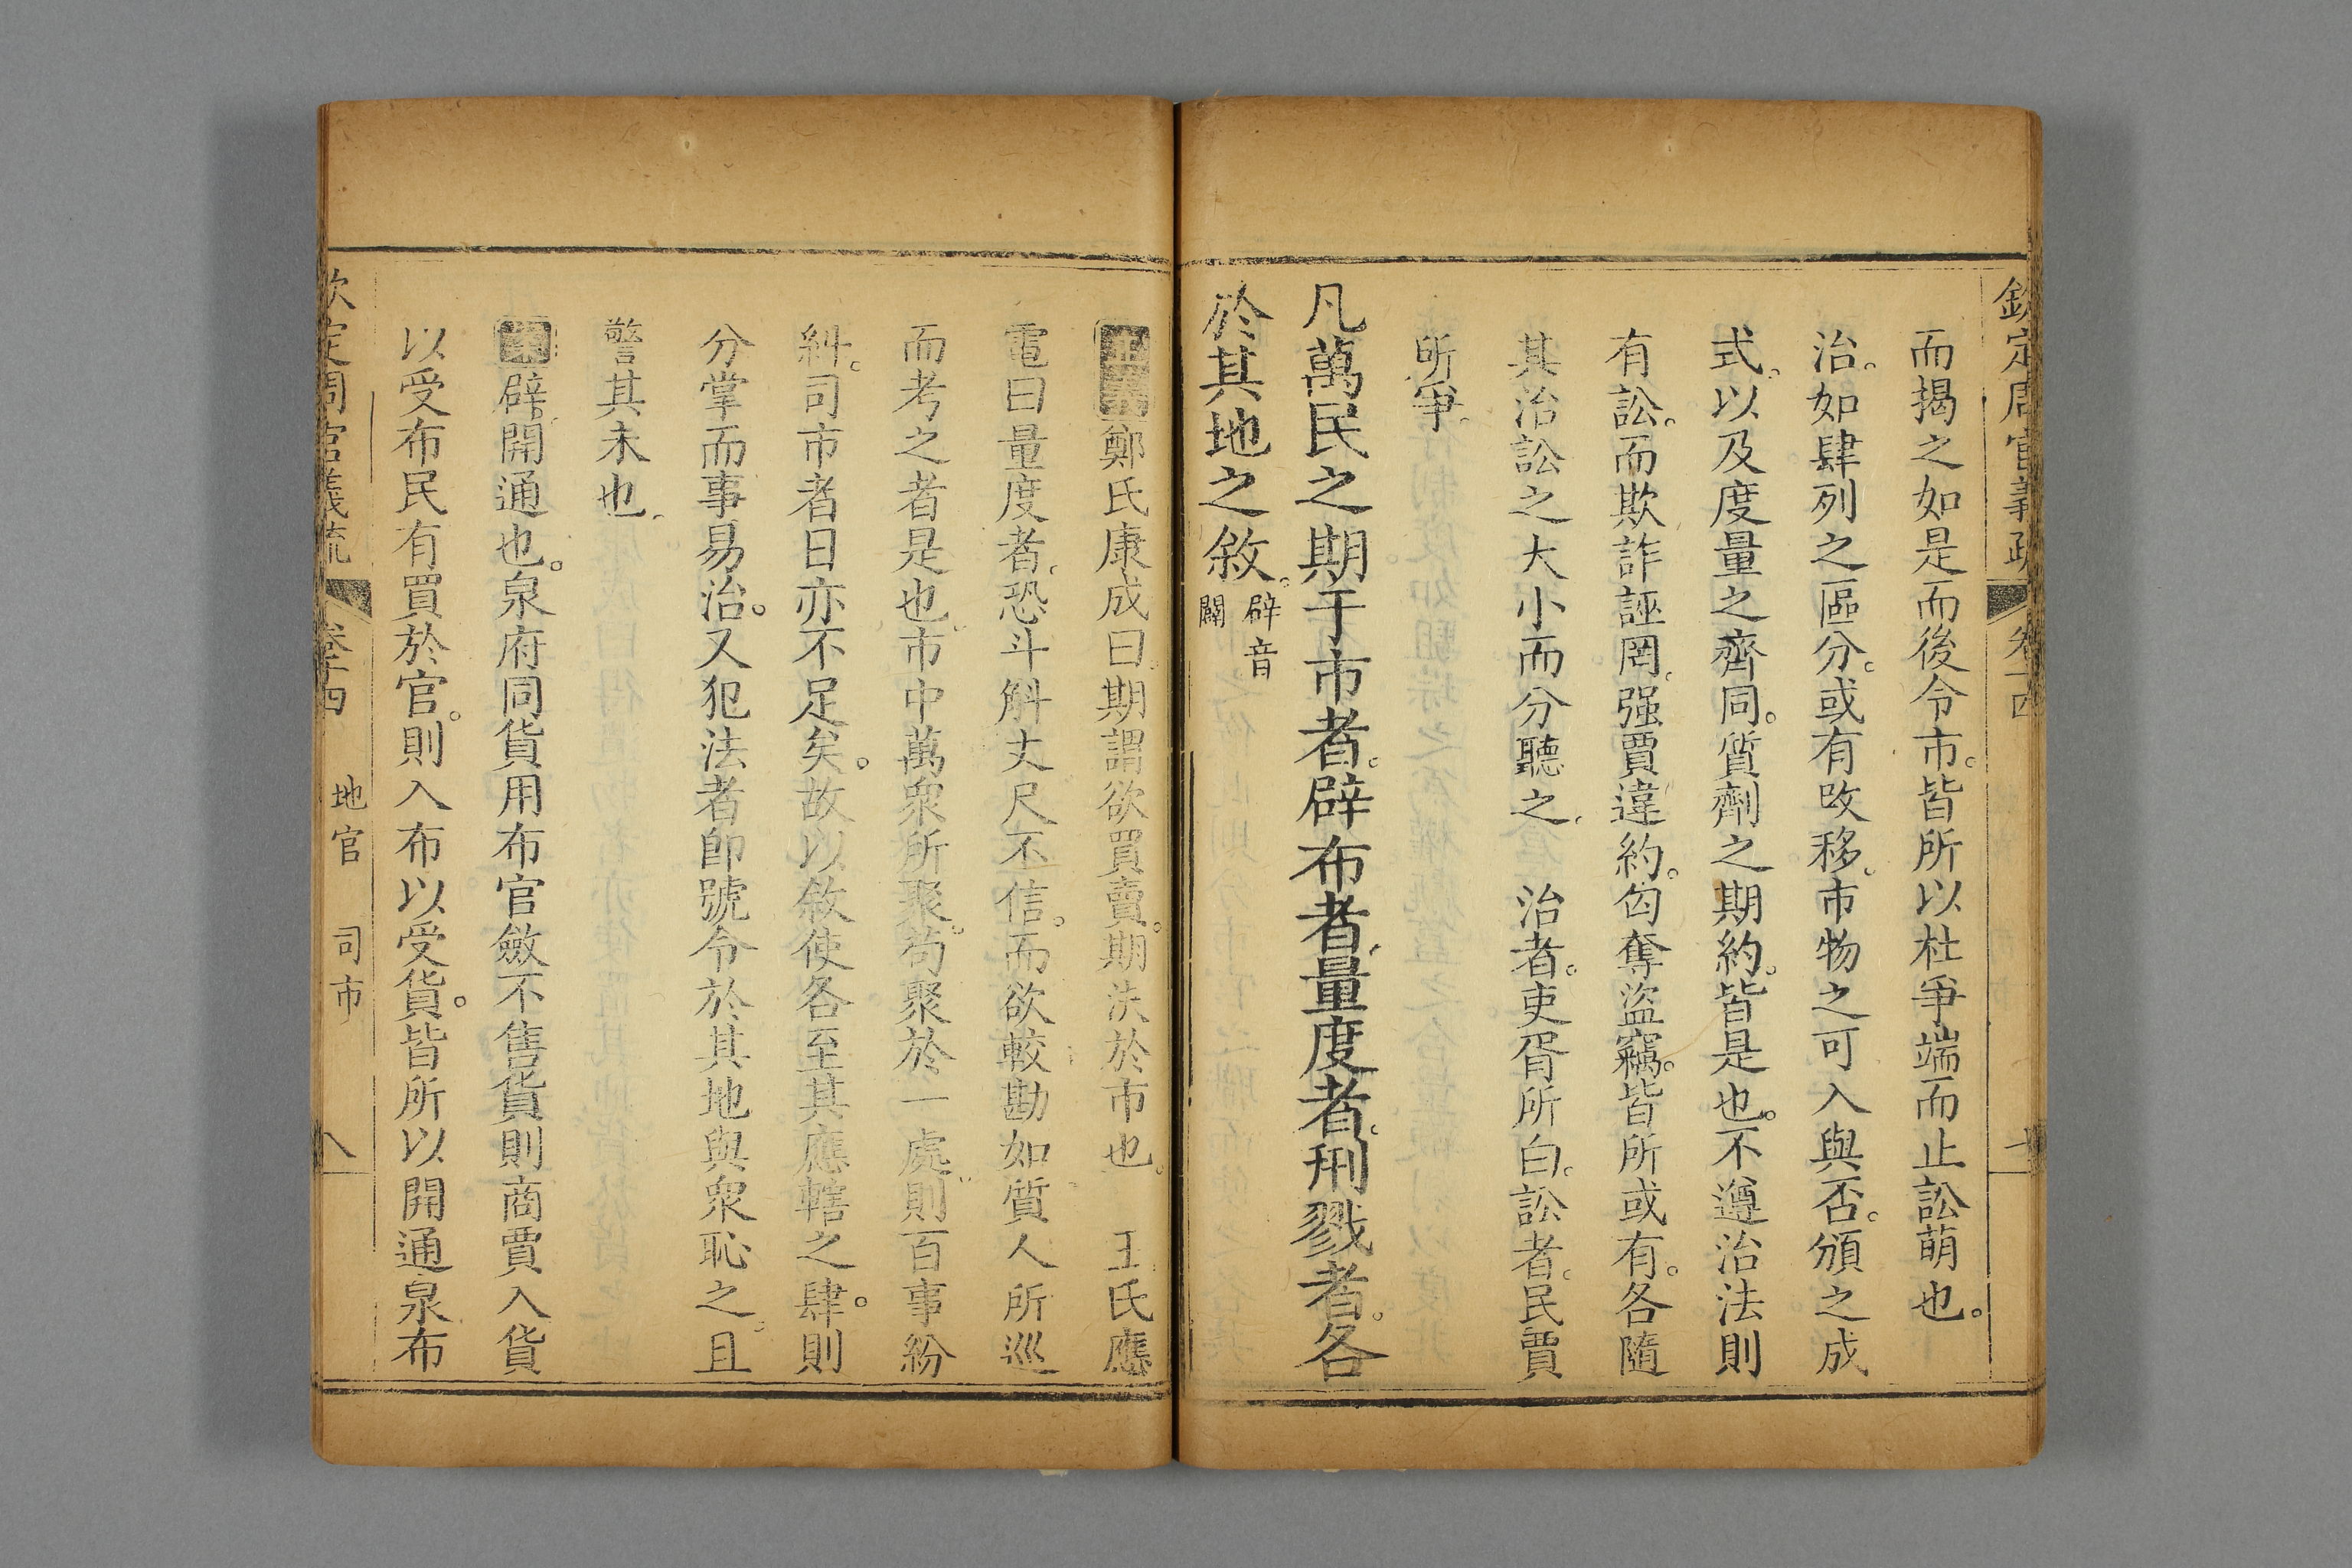 欽定周官義疏 卷十四
而揭之如是而後令市。皆所以杜爭端而止訟萌也。
治。如肆列之區分。或有改移。市物之可入與否。頒之成
式。以及度量之齊同。質劑之期約。皆是也。不遵治法則
有訟。而欺詐誣罔。强賈違約。匄奪盜竊。皆所或有。各隨
其治訟之大小而分聽之。 治者。吏胥所白。訟者。民賈
所爭。
凡萬民之期于市者。辟布者。量度者。刑戮者。各
於其地之敘。辟音
闢
正義鄭氏康成曰。期謂欲買賣。期決於市也。 王氏應
電曰量度者。恐斗斛丈尺不信。而欲較勘如質人所巡
而考之者是也。市中萬衆所聚。苟聚於一處。則百事紛
糾。司市者日亦不足矣。故以敘使各至其應轄之肆。則
分掌而事易治。又犯法者卽號令於其地與衆恥之。且
警其未也。
案辟。開通也。泉府同貨用布官斂不售貨則商賈入貨
以受布民有買於官。則入布以受貨。皆所以開通泉布
欽定周官義疏 卷十四 地官 司市 八